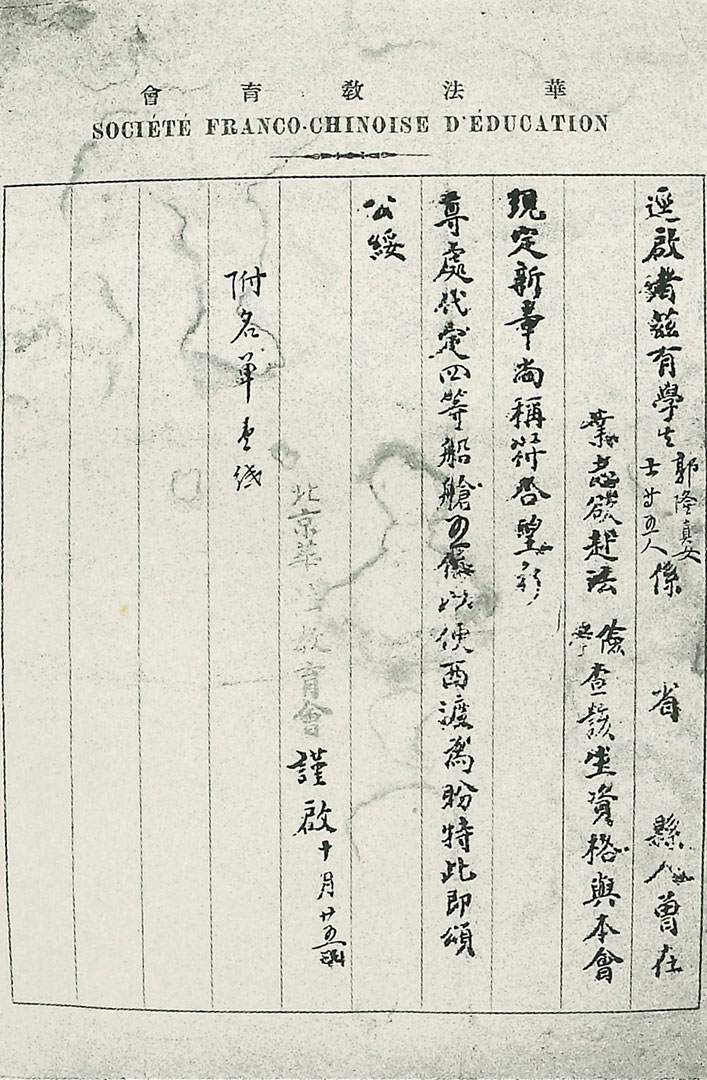 華法教育會
SOCIÉTÉ FRANCO-CHINOISE D'ÉDUCATION
逕啟者茲有學生郭隆真女士廿五人係 省 縣人曾在
業志欲赴法儉學查該生資格與本會
現定新章尚稱符合望
尊處代定四等船艙以便西渡為盼特此即頌
公綏
北京華法教育會謹啟十月廿五
附名單壹紙